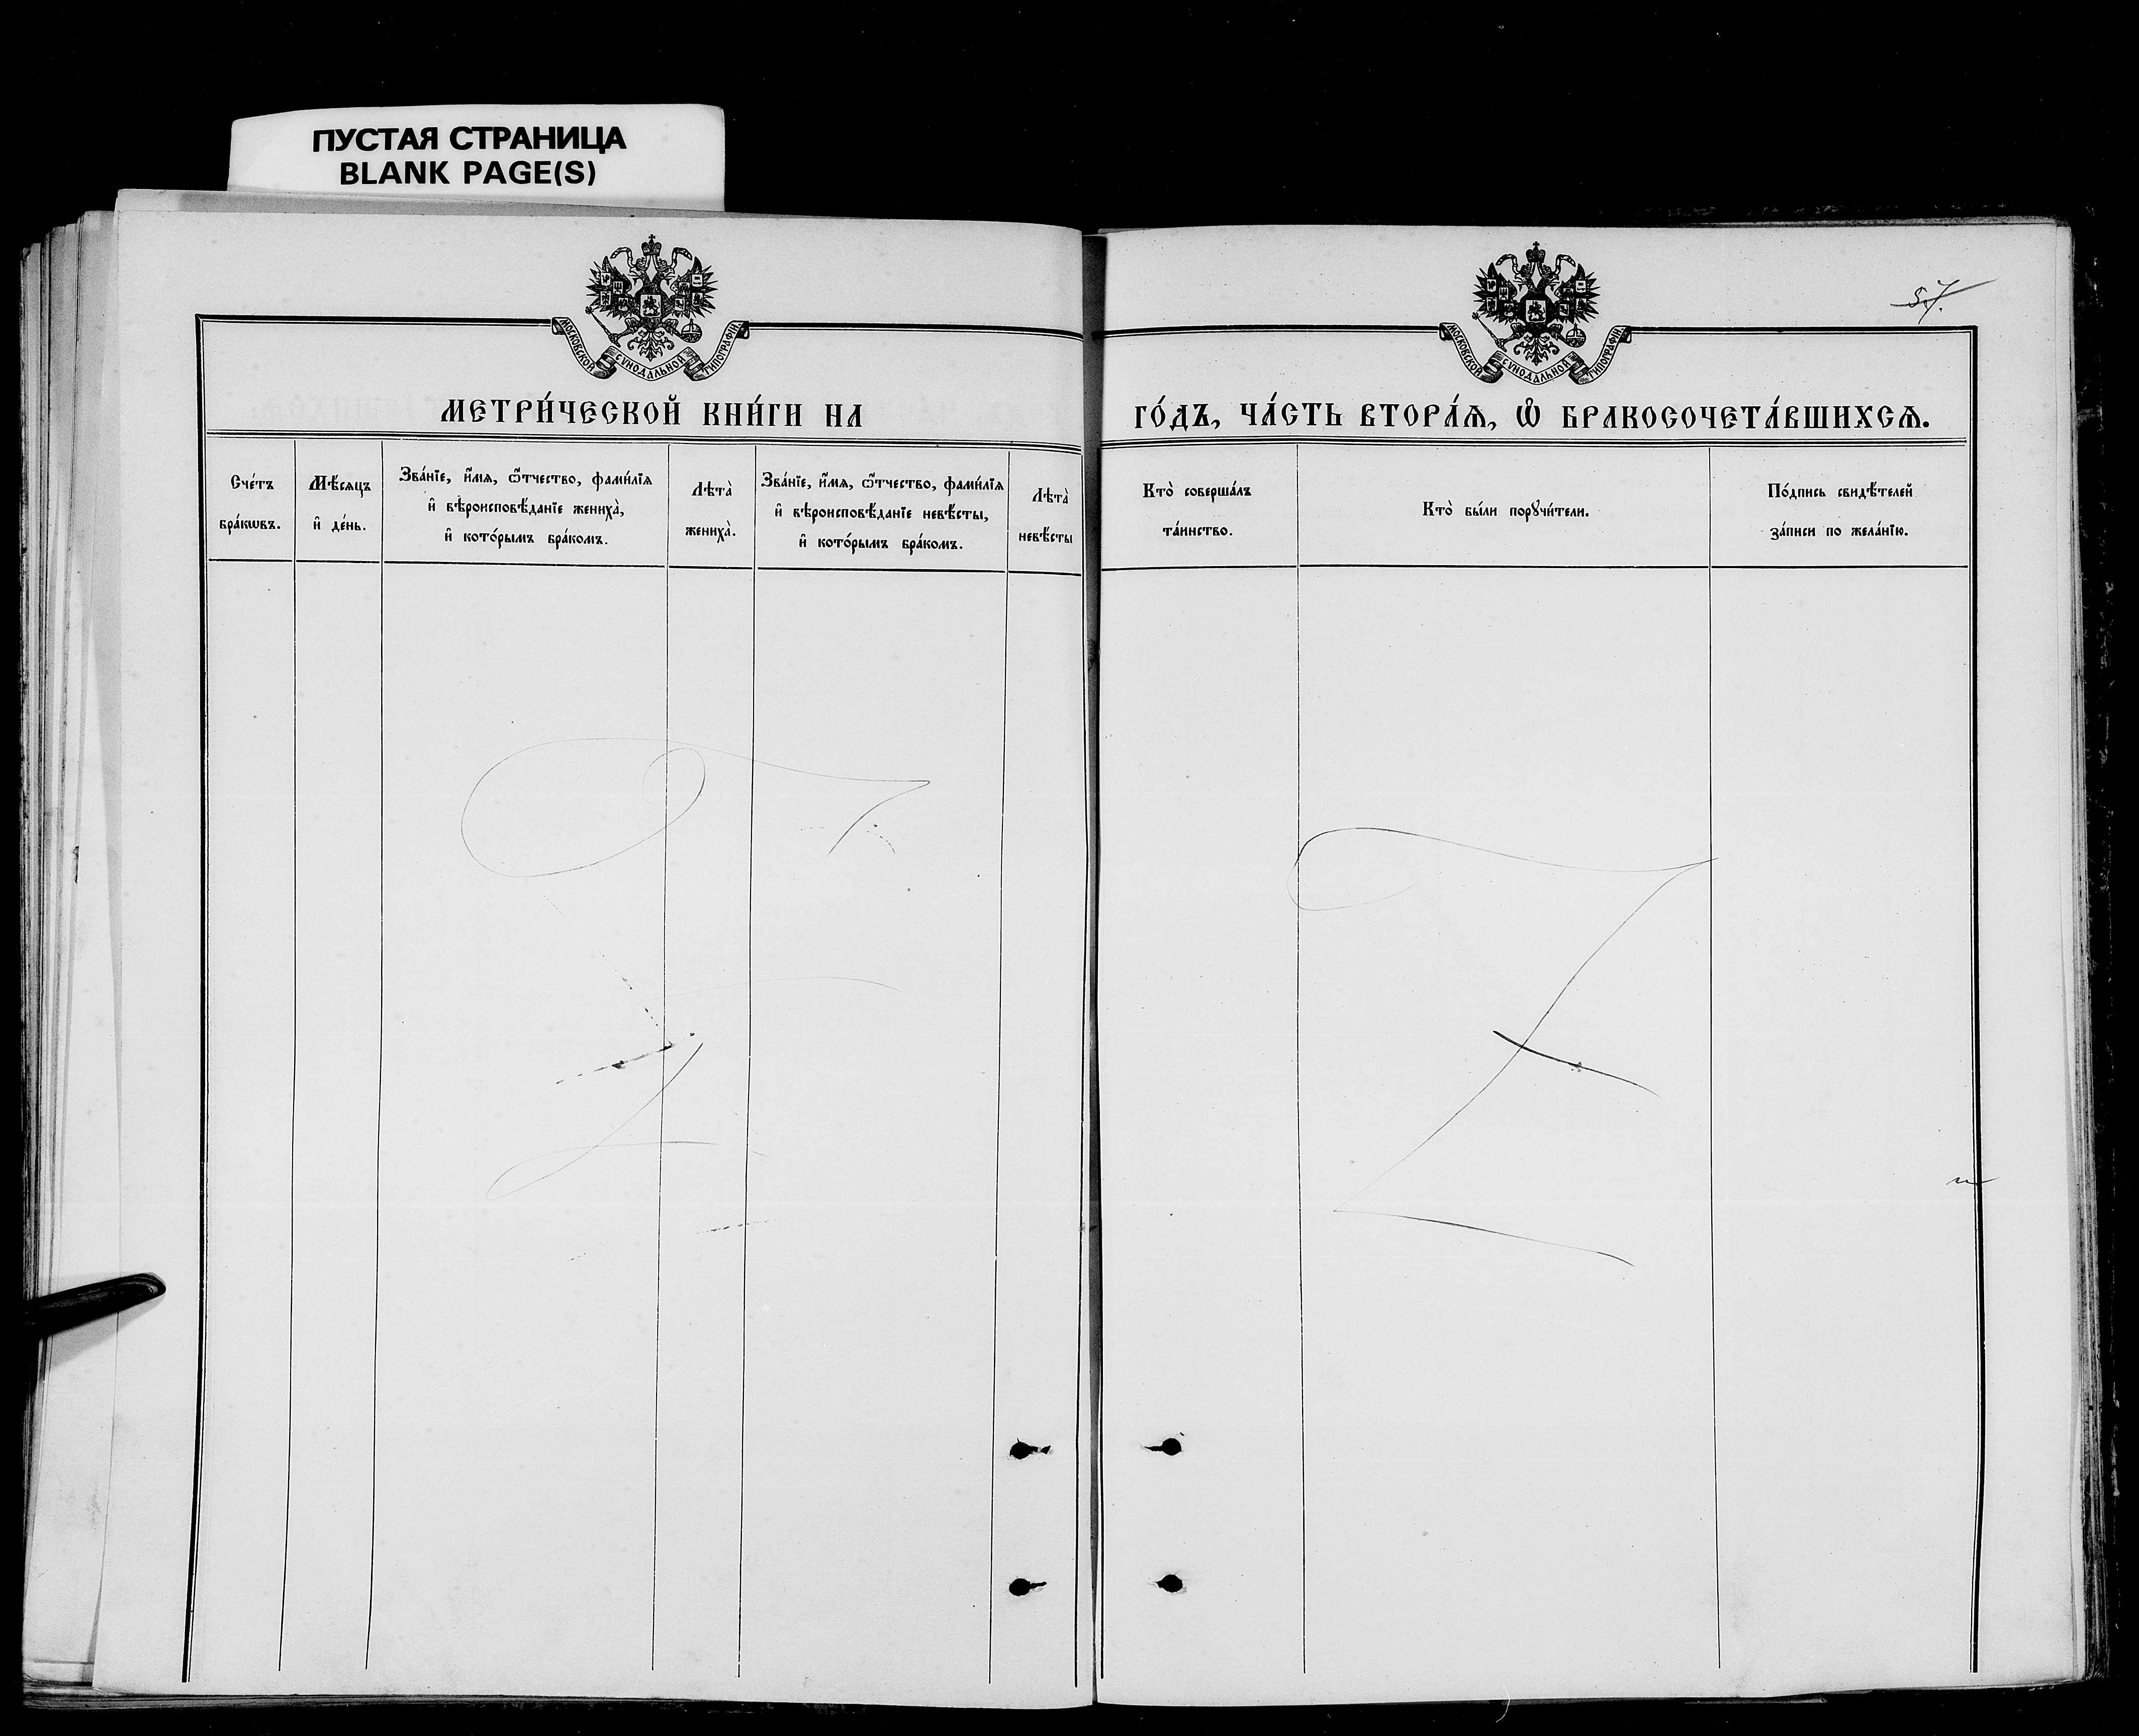 ПУСТАЯ СТРАНИЦА
BLANK PAGE(S)
МОСКОВСКОЙ СѴНОДАЛЬНОЙ ТИПОГРАФІИ
МЕТРИ́ЧЕСКОЙ КНИ́ГИ НА
Сче́тъ
бра́кѡвъ.
Мѣ́сяцъ
и҆ де́нь.
Зва́нїе, и҆́мѧ, ѻ҆́тчество, фами́лїѧ
и҆ вѣроисповѣ́данїе жениха̀,
и҆ кото́рымъ бра́комъ.
Лѣта̀
жениха̀.
Зва́нїе, и҆́мѧ, ѻ҆́тчество, фами́лїѧ
и҆ вѣроисповѣ́данїе невѣ́сты,
и҆ кото́рымъ бра́комъ.
Лѣта̀
невѣ́сты
57.
МОСКОВСКОЙ СѴНОДАЛЬНОЙ ТИПОГРАФІИ
ГО́ДЪ, ЧА́СТЬ ВТОРА́Ѧ, Ѡ҆ БРАКОСОЧЕТА́ВШИХСѦ.
Кто̀ соверша́лъ
та́инство.
Кто̀ бы́ли порꙋчи́тели.
По́дпись свидѣ́телей
за́писи по жела́нїю.